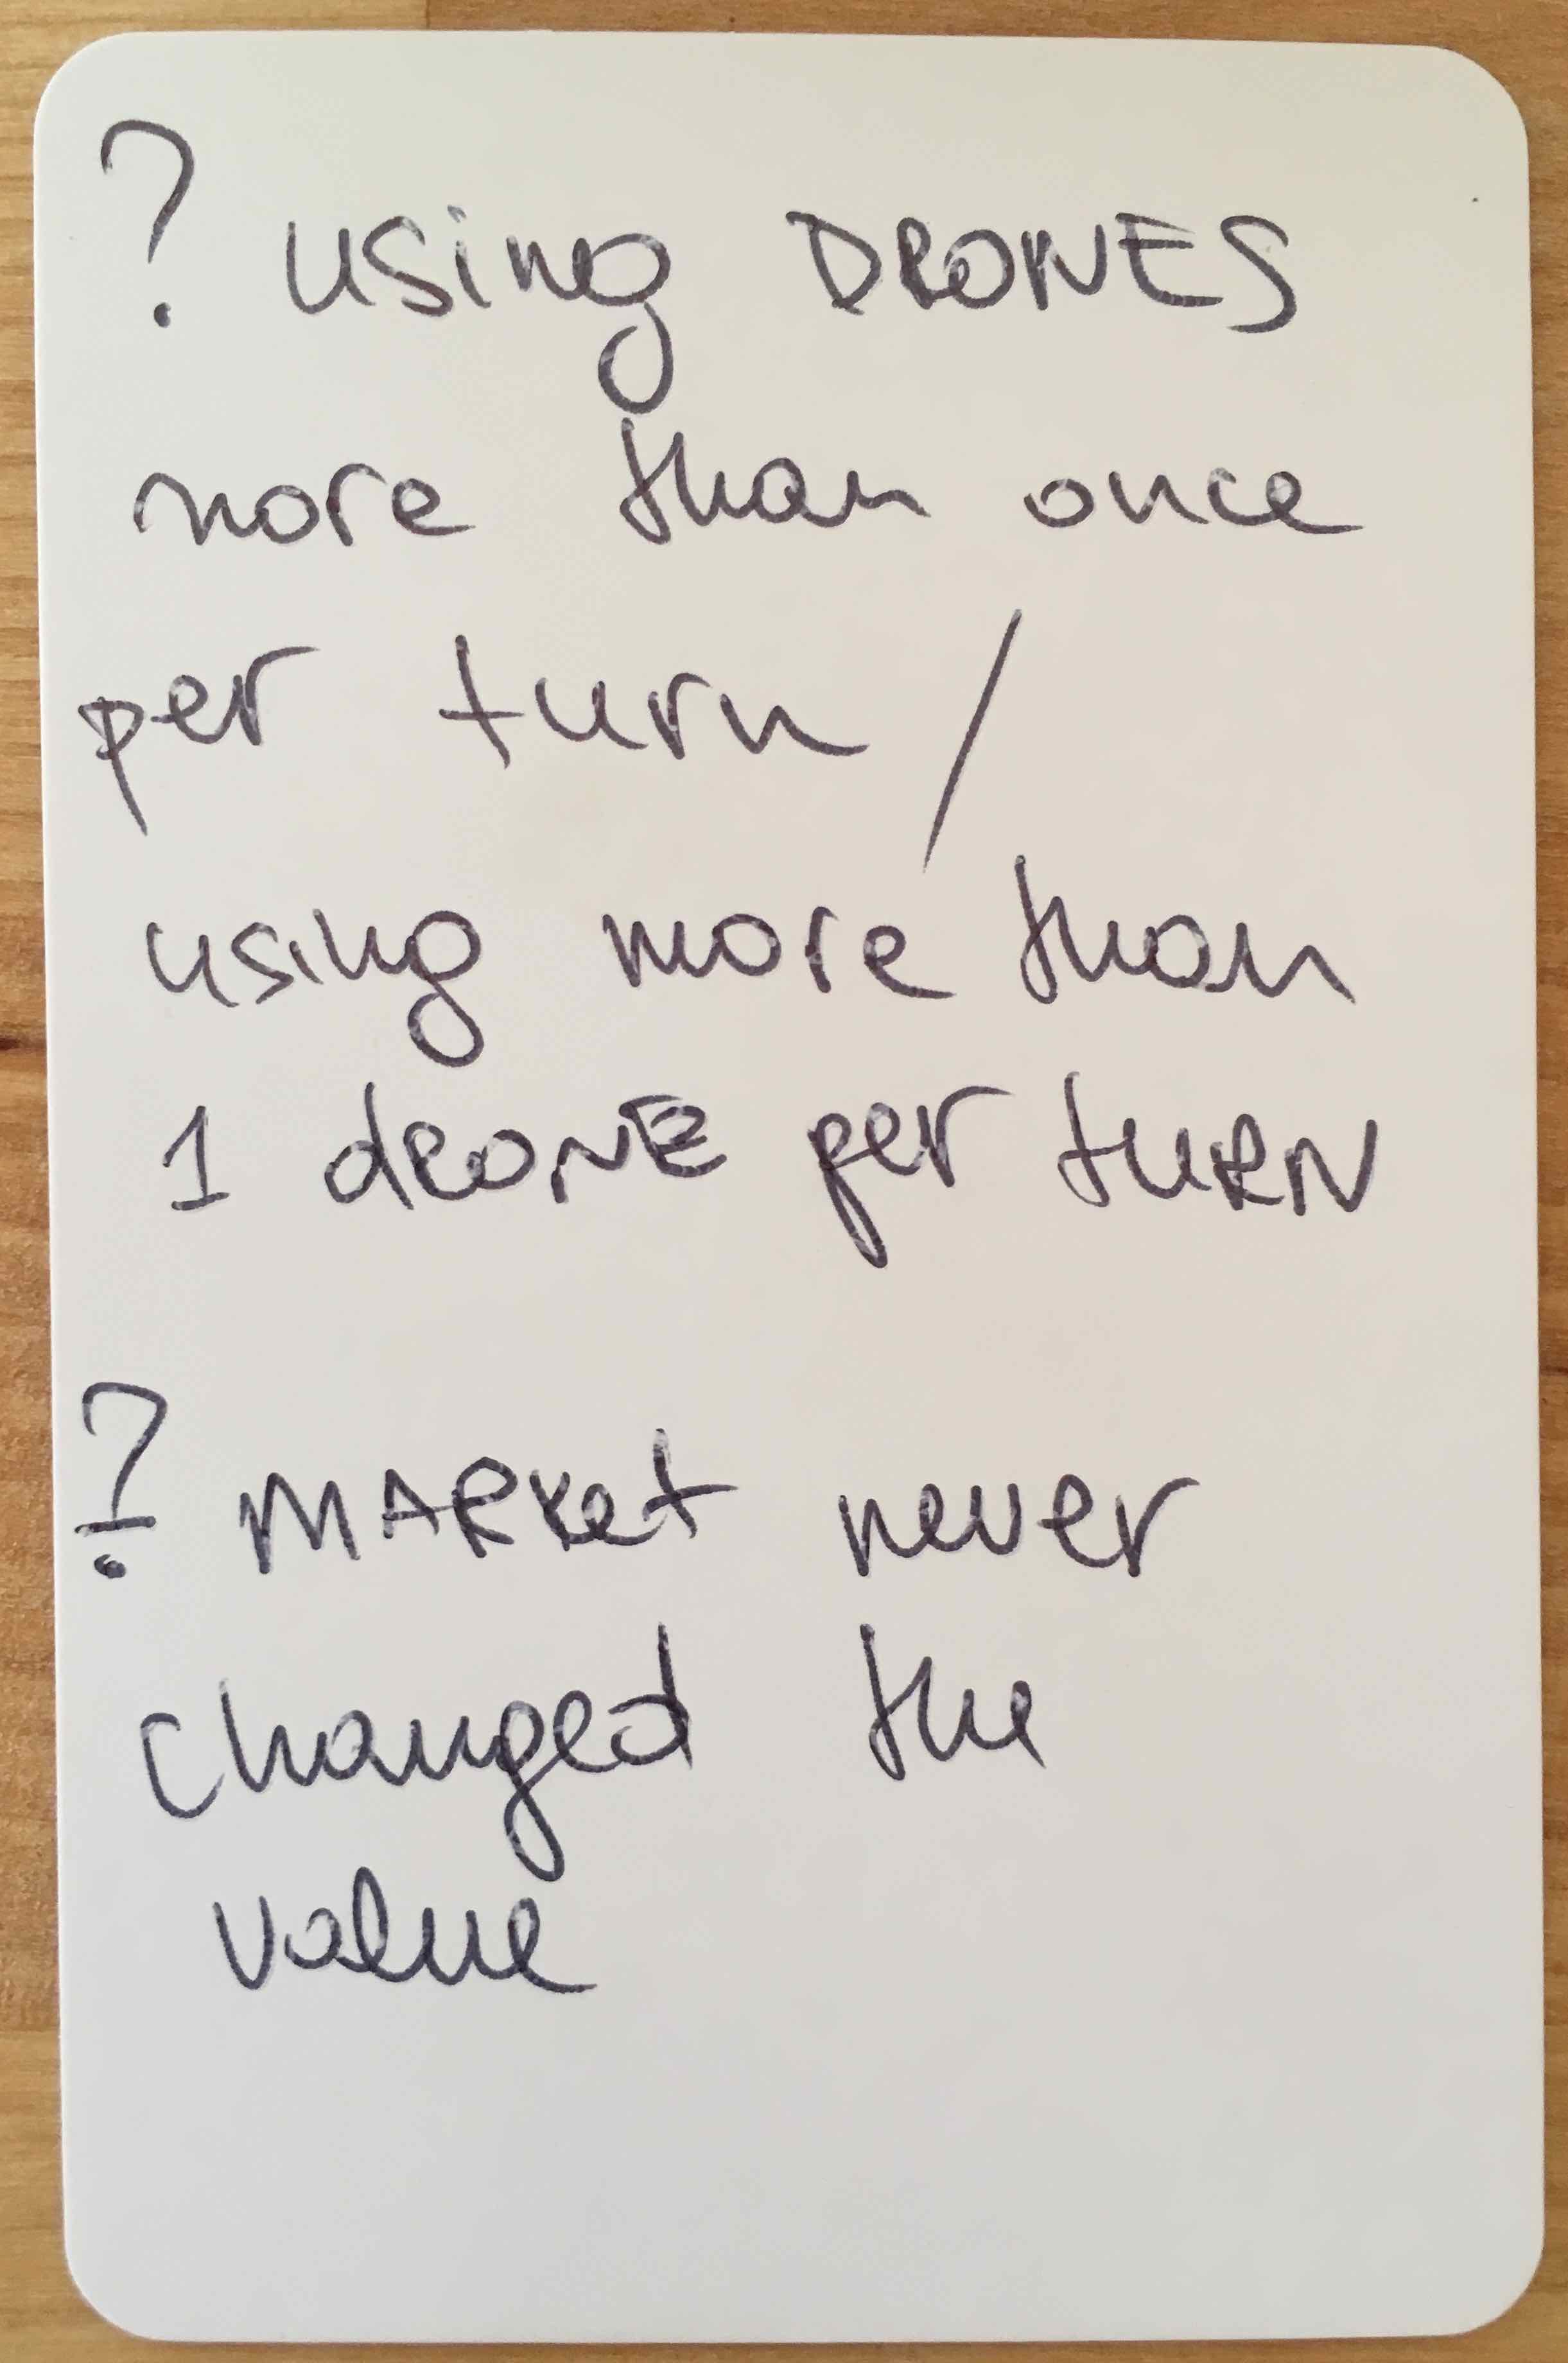 ? using DRONES
more than once
per turn /
using more than
1 dRONE per tuRN
? MARKet never
changed the
value